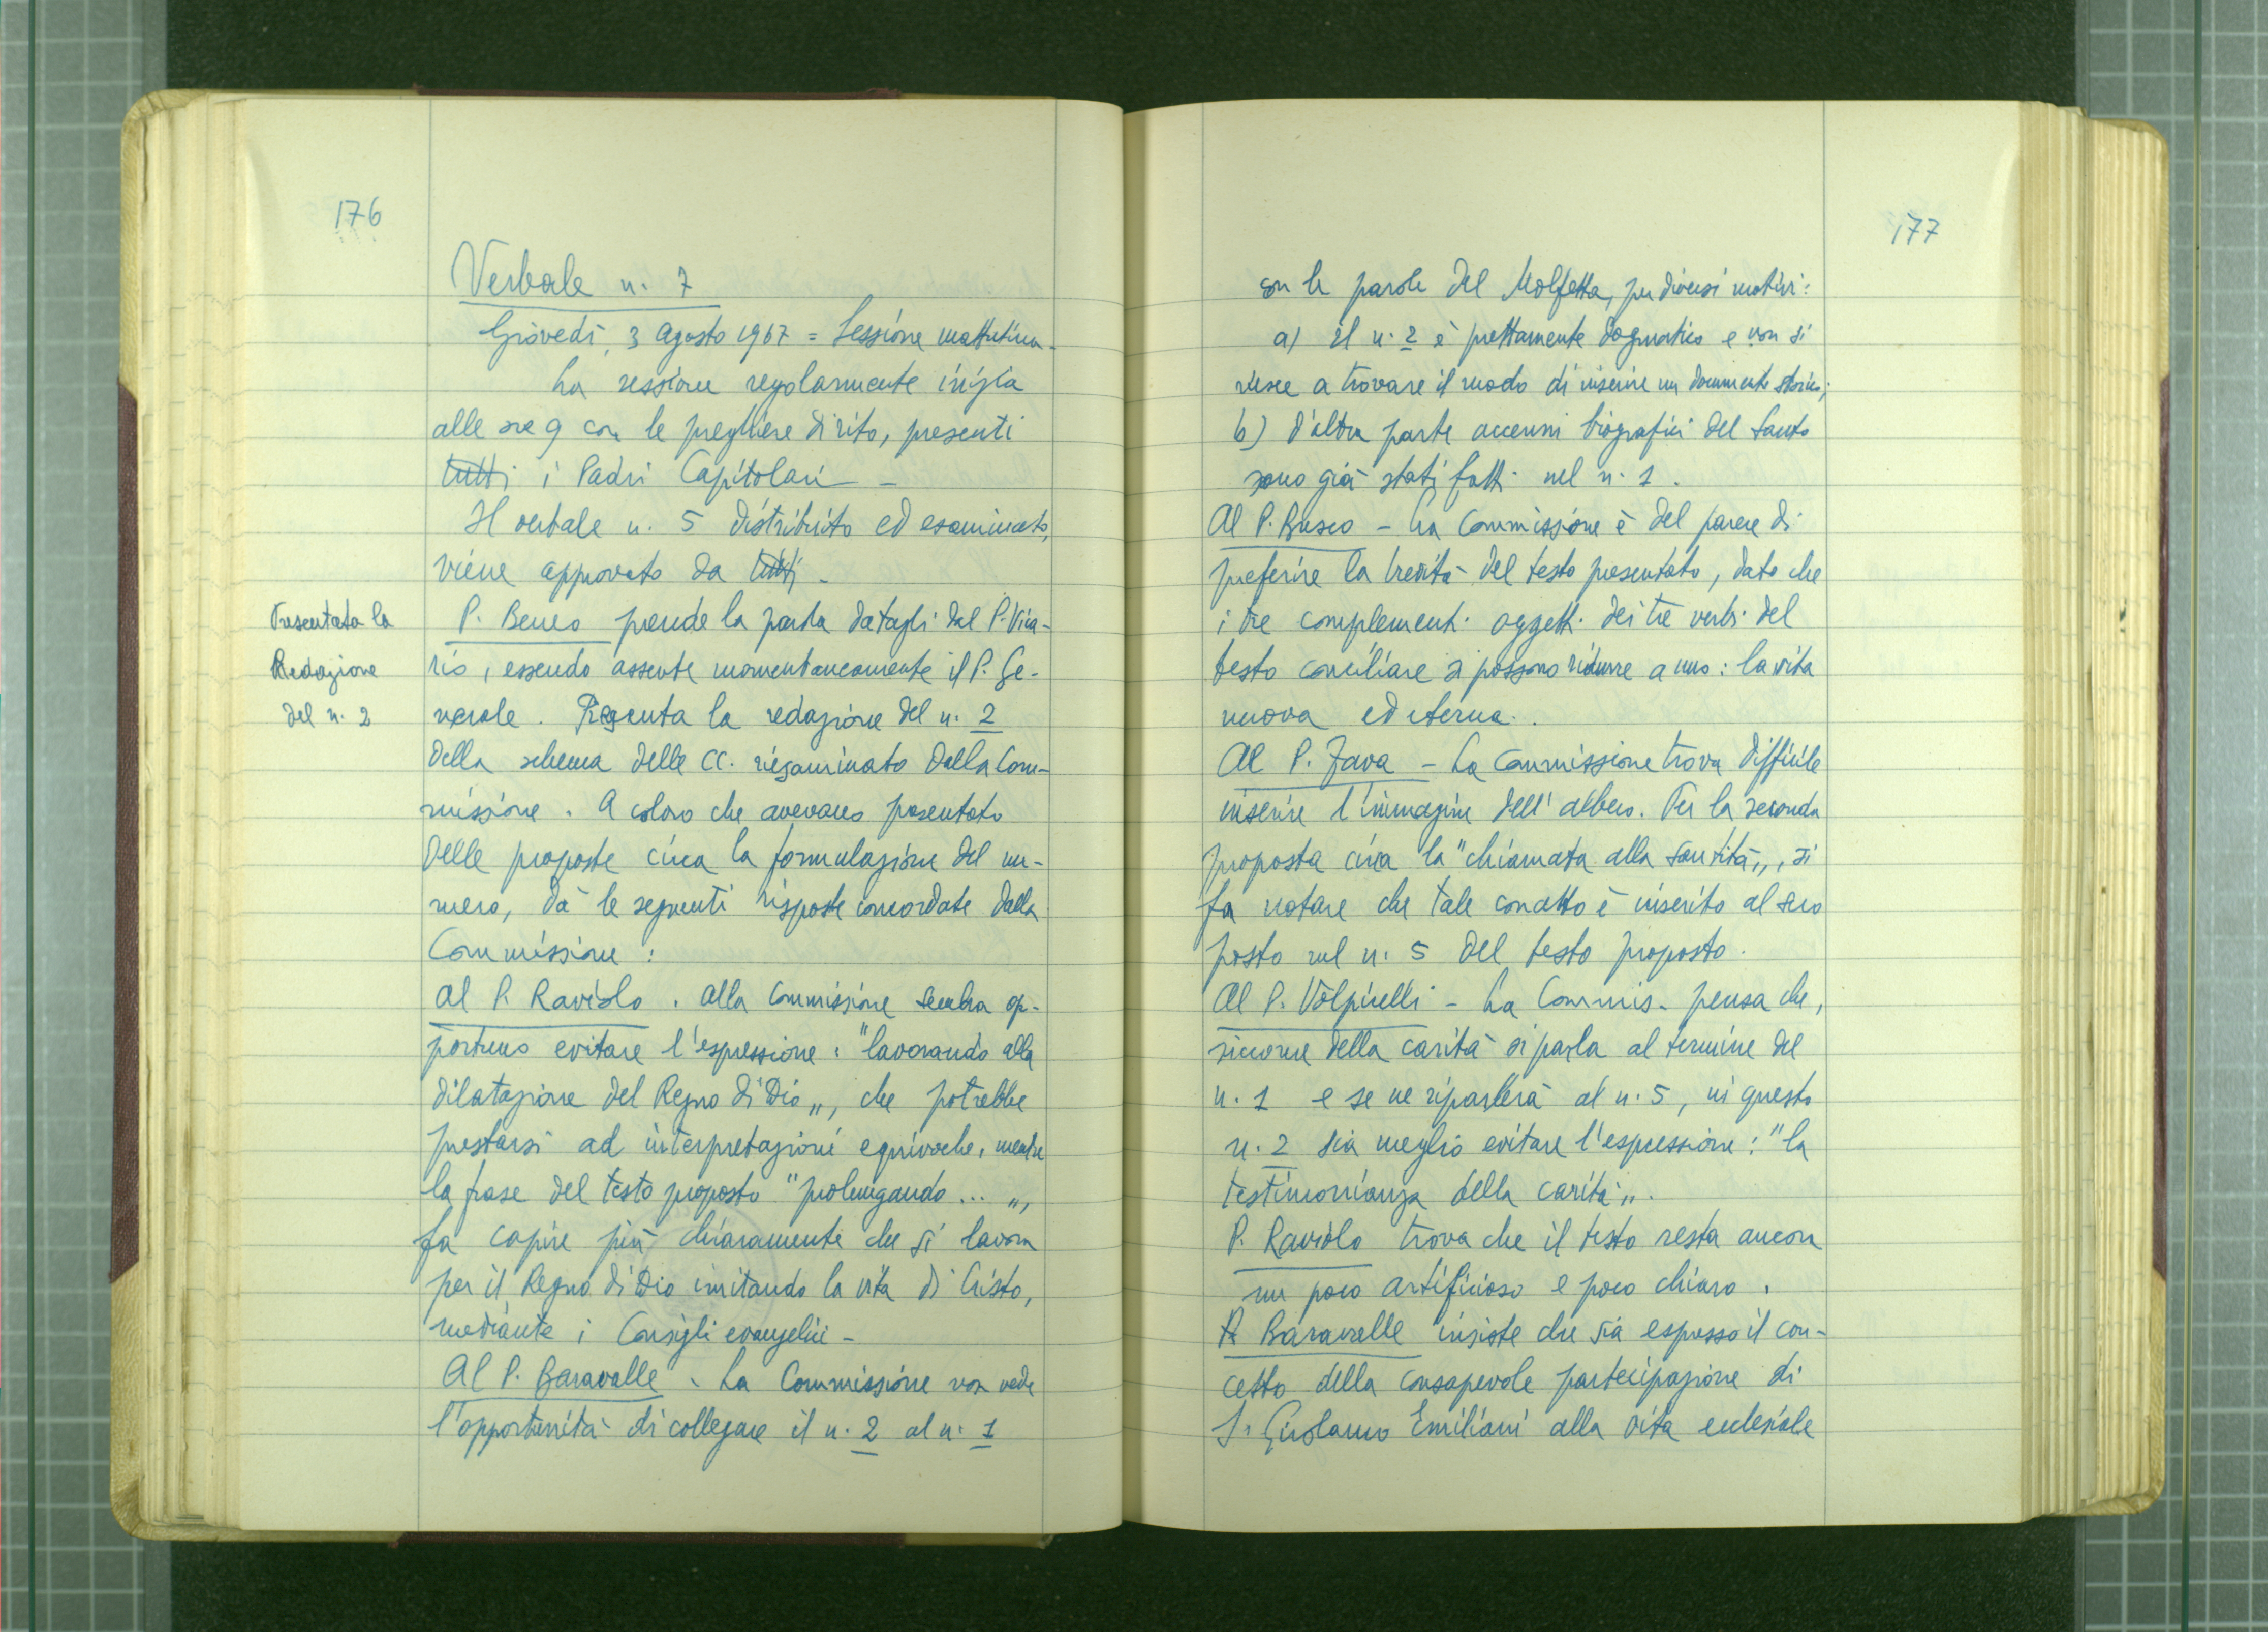 176
Verbale n. 7
Giovedì, 3 agosto 1967 = Sessione mattutina.
La sessione regolarmente inizia
alle ore 9 con le preghiere di rito, presenti
tutti i Padri Capitolari -
Il verbale n. 5 distribuito ed esaminato,
viene approvato da tutti.
Presentata la
Redazione
del n. 2
P. Beneo prende la parola datagli dal P. Vica-
rio, essendo assente momentaneamente il P. Ge-
nerale. Presenta la redazione del n. 2
della schema delle CC. riesaminato dalla Com-
missione. A coloro che avevano presentato
delle proposte circa la formulazione del nu-
mero, dà le seguenti risposte concordate dalla
Commissione:
Al P. Raviolo. Alla Commissione sembra op-
portuno evitare l'espressione: "lavorando alla
dilatazione del Regno di Dio", che potrebbe
prestarsi ad interpretazioni equivoche, mentre
la frase del testo proposto "prolungando...",
fa capire più chiaramente che si lavora
per il Regno di Dio imitando la vita di Cristo,
mediante i Consigli evangelici -
Al P. Baravalle. La Commissione non vede
l'opportunità di collegare il n. 2 al n. 1
177
con le parole del Molfetta, per diversi motivi:
a) il n. 2 è prettamente dogmatico e non si
riesce a trovare il modo di inserire un documento storico;
b) d'altra parte accenni biografici del Santo
sono già stati fatti nel n. 1.
Al P. Busco - La Commissione è del parere di
preferire la brevità del testo presentato, dato che
i tre complementi oggetti dei tre verbi del
testo conciliare si possono ridurre a uno: la vita
nuova ed eterna.
Al P. Fava - La Commissione trova difficile
inserire l'immagine dell'albero. Per la seconda
proposta circa la "chiamata alla santità", si
fa notare che tale concetto è inserito al suo
posto nel n. 5 del testo proposto.
Al P. Volpicelli - La Commis. pensa che,
siccome della carità si parla al termine del
n. 1 e se ne riparlerà al n. 5, in questo
n. 2 sia meglio evitare l'espressione: "la
testimonianza della carità".
P. Raviolo trova che il testo resta ancora
un poco artificioso e poco chiaro.
P. Baravalle insiste che sia espresso il con-
cetto della consapevole partecipazione di
S. Girolamo Emiliani alla vita ecclesiale